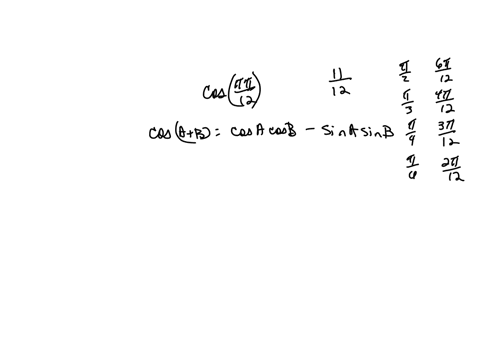 cos(ππ/12) 11/12 π/2 6π/12
π/3 4π/12
cos(A+B) = cosA cosB - sinA sinB π/4 3π/12
π/6 2π/12